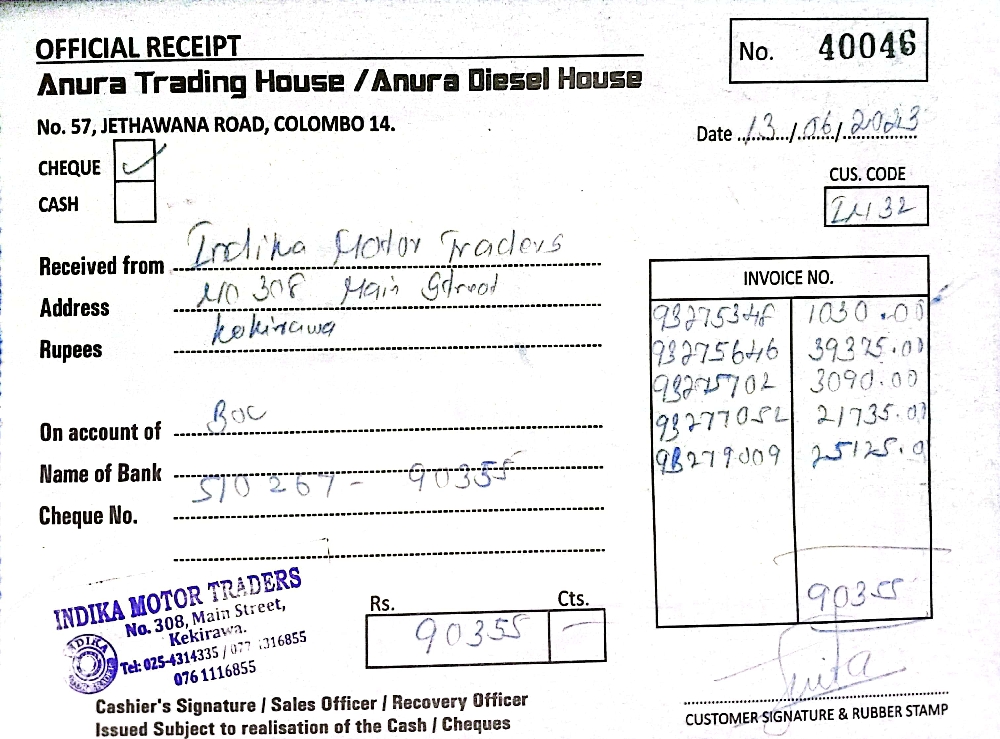 OFFICIAL RECEIPT
No. 40046
Anura Trading House / Anura Diesel House
No. 57, JETHAWANA ROAD, COLOMBO 14.
Date 13/06/2023
CHEQUE ✓
CASH
CUS. CODE
IM32
Received from Indika Motor Traders
Address No 308 Main Street
Kekirawa
Rupees
INVOICE NO.
93275348 1030.00
93275646 39375.00
93275702 3090.00
93277052 21735.00
93279009 25125.0
90355
On account of BOC
Name of Bank
510267 - 90355
Cheque No.
INDIKA MOTOR TRADERS
No. 308, Main Street,
Kekirawa.
Tel: 025-4314335 / 077 1316855
076 1116855
INDIKA
Rs. Cts.
90355 —
Cashier's Signature / Sales Officer / Recovery Officer
Issued Subject to realisation of the Cash / Cheques
CUSTOMER SIGNATURE & RUBBER STAMP